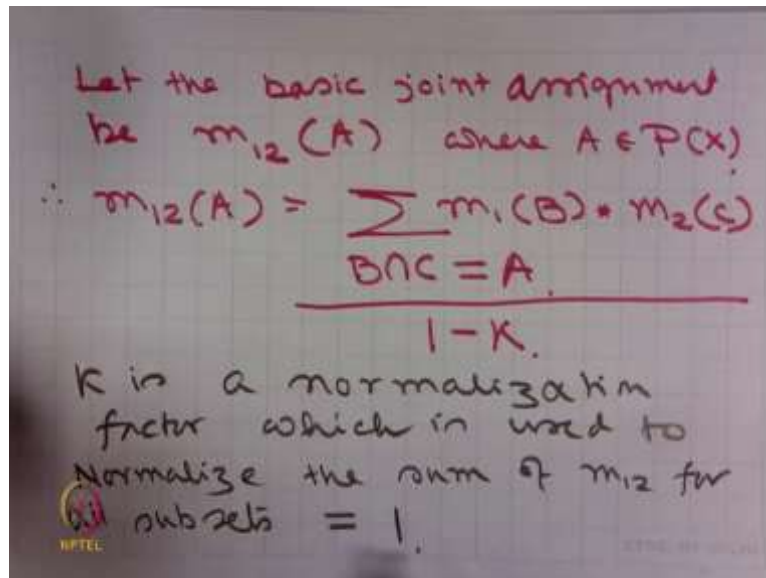 Let the basic joint assignment
be m₁₂(A) where A ∈ P(X)
∴ m₁₂(A) = ∑ m₁(B) * m₂(C)
B∩C = A.
1-K.
K is a normalization
factor which is used to
Normalize the sum of m₁₂ for
all subsets = 1.
NPTEL